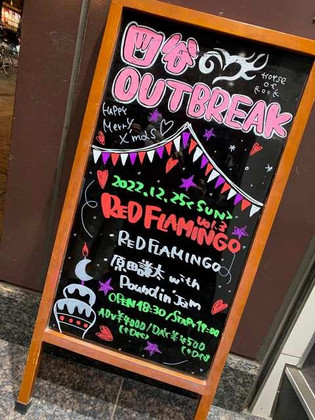 四谷
OUTBREAK
HORSE
OF
ROCK
Happy
Merry
Xmas♡
2022.12.25<SUN>
RED FLAMINGO
vol.3
RED FLAMINGO
原田謙太 with
Poundin' Jam
OPEN 18:30/START 19:00
ADV ¥4000/DAY ¥4500
(+D代) (+D代)